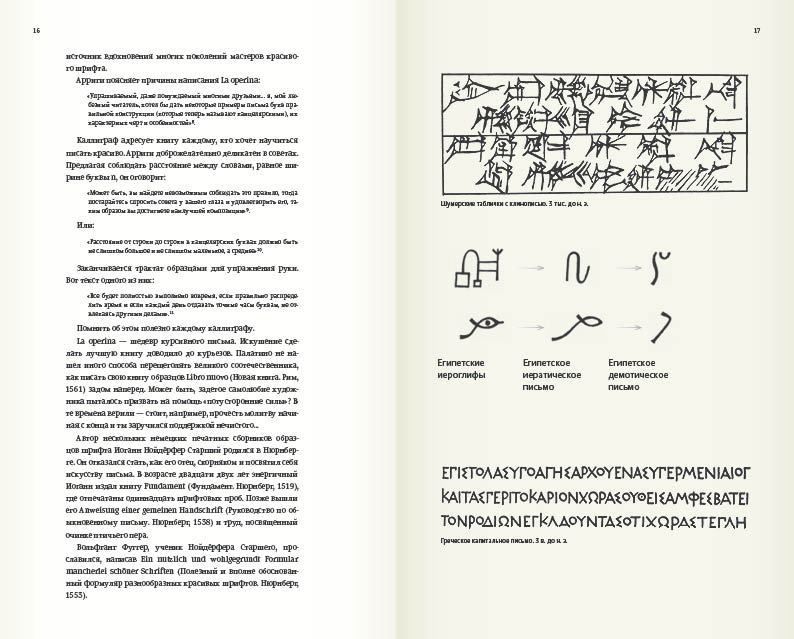 16
источник вдохновения многих поколений мастеров красиво-
го шрифта.
Арриги поясняет причины написания La operina:
«Упрашиваемый, даже понуждаемый многими друзьями... я, мой лю-
безный читатель, хотел бы дать некоторые примеры письма букв пра-
вильной конструкции (которые теперь называют канцелярскими), их
характерных черт и особенностей»⁸.
Каллиграф адресует книгу каждому, кто хочет научиться
писать красиво. Арриги доброжелательно деликатен в советах.
Предлагая соблюдать расстояние между словами, равное ши-
рине буквы n, он оговорит:
«Может быть, вы найдете невозможным соблюдать это правило, тогда
постарайтесь спросить совета у вашего глаза и удовлетворить его, та-
ким образом вы достигнете наилучшей композиции»⁹.
Или:
«Расстояние от строки до строки в канцелярских буквах должно быть
не слишком большое и не слишком маленькое, а среднее»¹⁰.
Заканчивается трактат образцами для упражнения руки.
Вот текст одного из них:
«Все будет полностью выполнено вовремя, если правильно распреде-
лить время и если каждый день отдавать точные часы буквам, не от-
влекаясь другими делами».¹¹
Помнить об этом полезно каждому каллиграфу.
La operina — шедевр курсивного письма. Искушение сде-
лать лучшую книгу доводило до курьезов. Палатино не на-
шел иного способа перещеголять великого соотечественника,
как писать свою книгу образцов Libro nuovo (Новая книга. Рим,
1561) задом наперед. Может быть, задетое самолюбие худож-
ника пыталось призвать на помощь «потусторонние силы»? В
те времена верили — стоит, например, прочесть молитву начи-
ная с конца и ты заручился поддержкой нечистого...
Автор нескольких немецких печатных сборников образ-
цов шрифта Иоганн Нойдёрфер Старший родился в Нюрнбер-
ге. Он отказался стать, как его отец, скорняком и посвятил себя
искусству письма. В возрасте двадцати двух лет энергичный
Иоганн издал книгу Fundament (Фундамент. Нюрнберг, 1519),
где отпечатаны одиннадцать шрифтовых проб. Позже вышли
его Anweisung einer gemeinen Handschrift (Руководство по об-
ыкновенному письму. Нюрнберг, 1538) и труд, посвященный
очинке птичьего пера.
Вольфганг Фуггер, ученик Нойдёрфера Старшего, про-
славился, написав Ein nutzlich und wohlgegrundt Formular
mancherlei schöner Schriften (Полезный и вполне обоснован-
ный формуляр разнообразных красивых шрифтов. Нюрнберг,
1553).
17
Шумерские таблички с клинописью. 3 тыс. до н. э.
Египетские
иероглифы
Египетское
иератическое
письмо
Египетское
демотическое
письмо
ΕΓΙΣΤΟΛΑΣΥΓΟΑΓΗΣΑΡΧΟΥΕΝΑΣΥΓΕΡΜΕΝΙΑΙΟΓ
ΚΑΙΤΑΣΓΕΡΙΤΟΚΑΡΙΟΝΧΩΡΑΣΟΥΘΕΙΣΑΜΦΕΣΒΑΤΕΙ
ΤΟΝΡΟΔΙΩΝΕΓΚΛΑΟΥΝΤΑΣΟΤΙΧΩΡΑΣΤΕΓΛΗ
Греческое капитальное письмо. 3 в. до н. э.